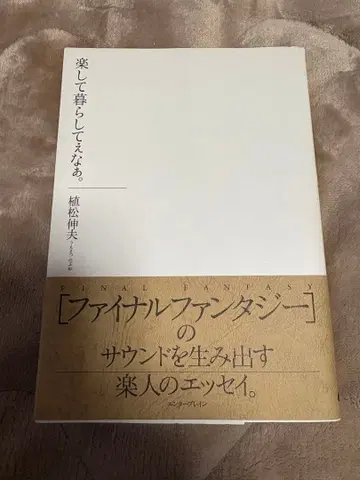 楽して暮らしてぇなぁ。
植松伸夫
うえまつ・のぶお
FINAL FANTASY
[ファイナルファンタジー]
の
サウンドを生み出す
楽人のエッセイ。
エンターブレイン